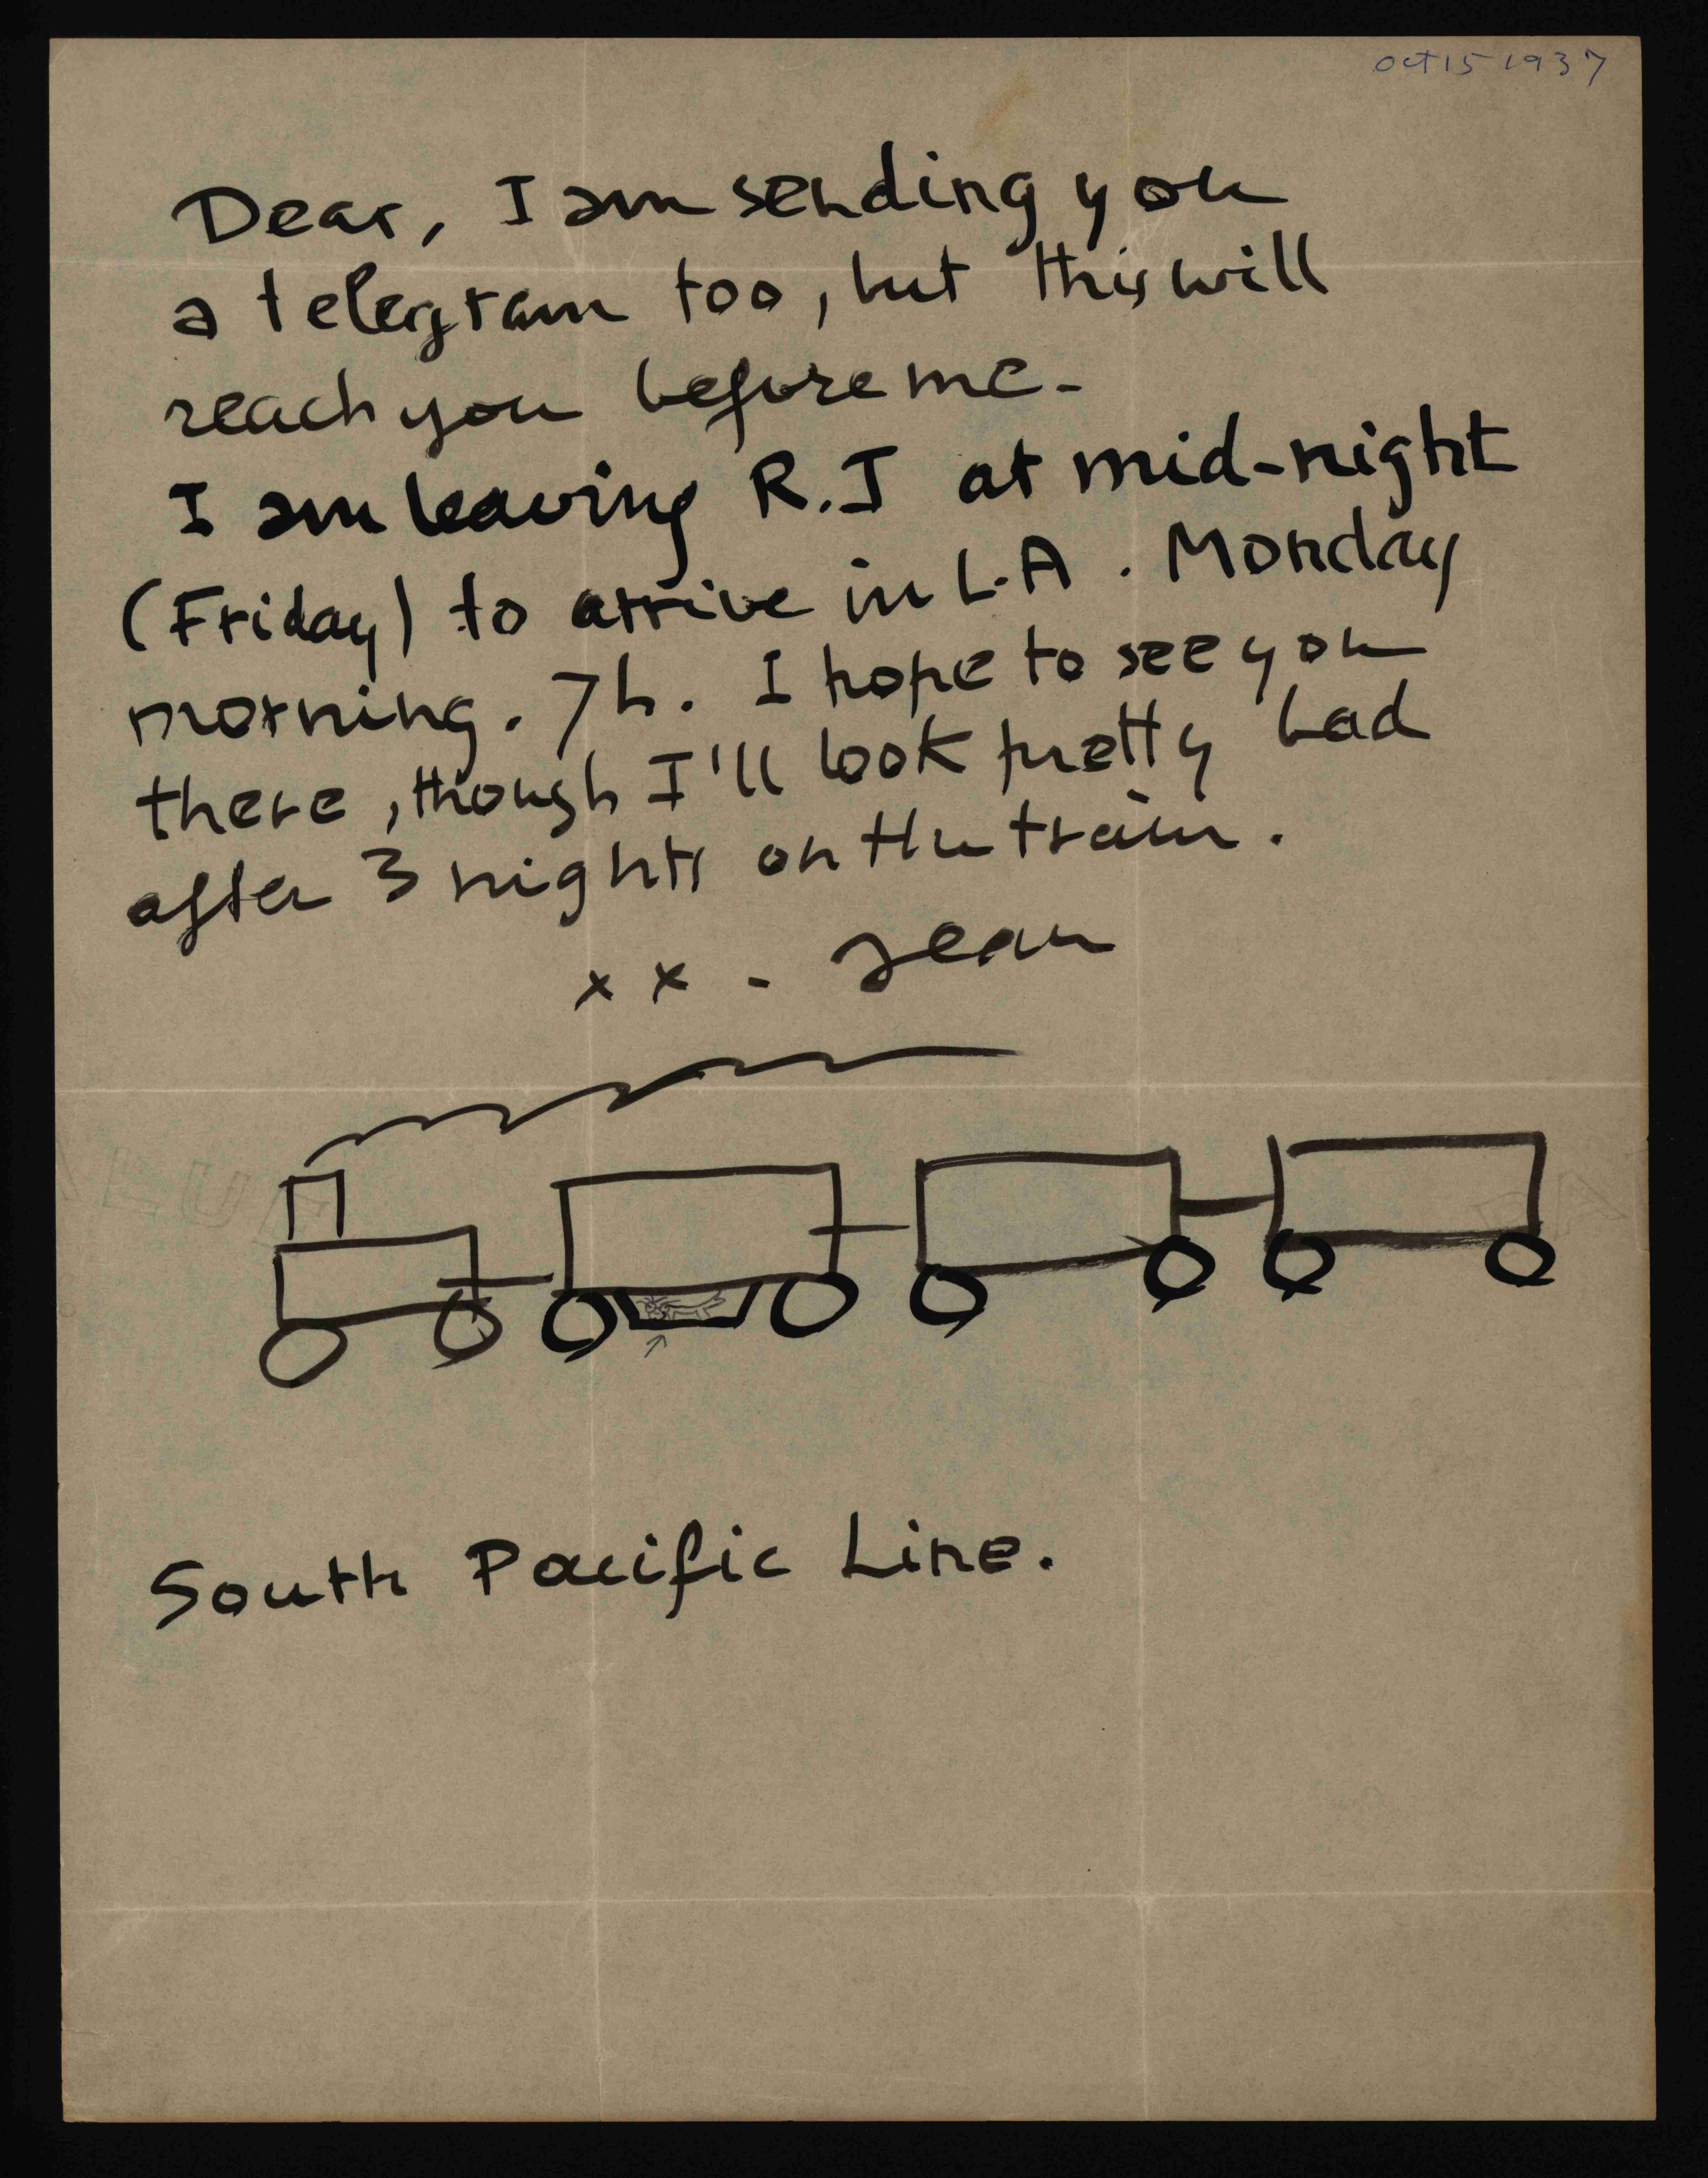 Oct 15 1937
Dear, I am sending you
a telegram too, but this will
reach you before me.
I am leaving R.I at mid-night
(Friday) to arrive in L.A. Monday
morning. 7h. I hope to see you
there, though I'll look pretty bad
after 3 nights on the train.
x x - Jean
South Pacific Line.